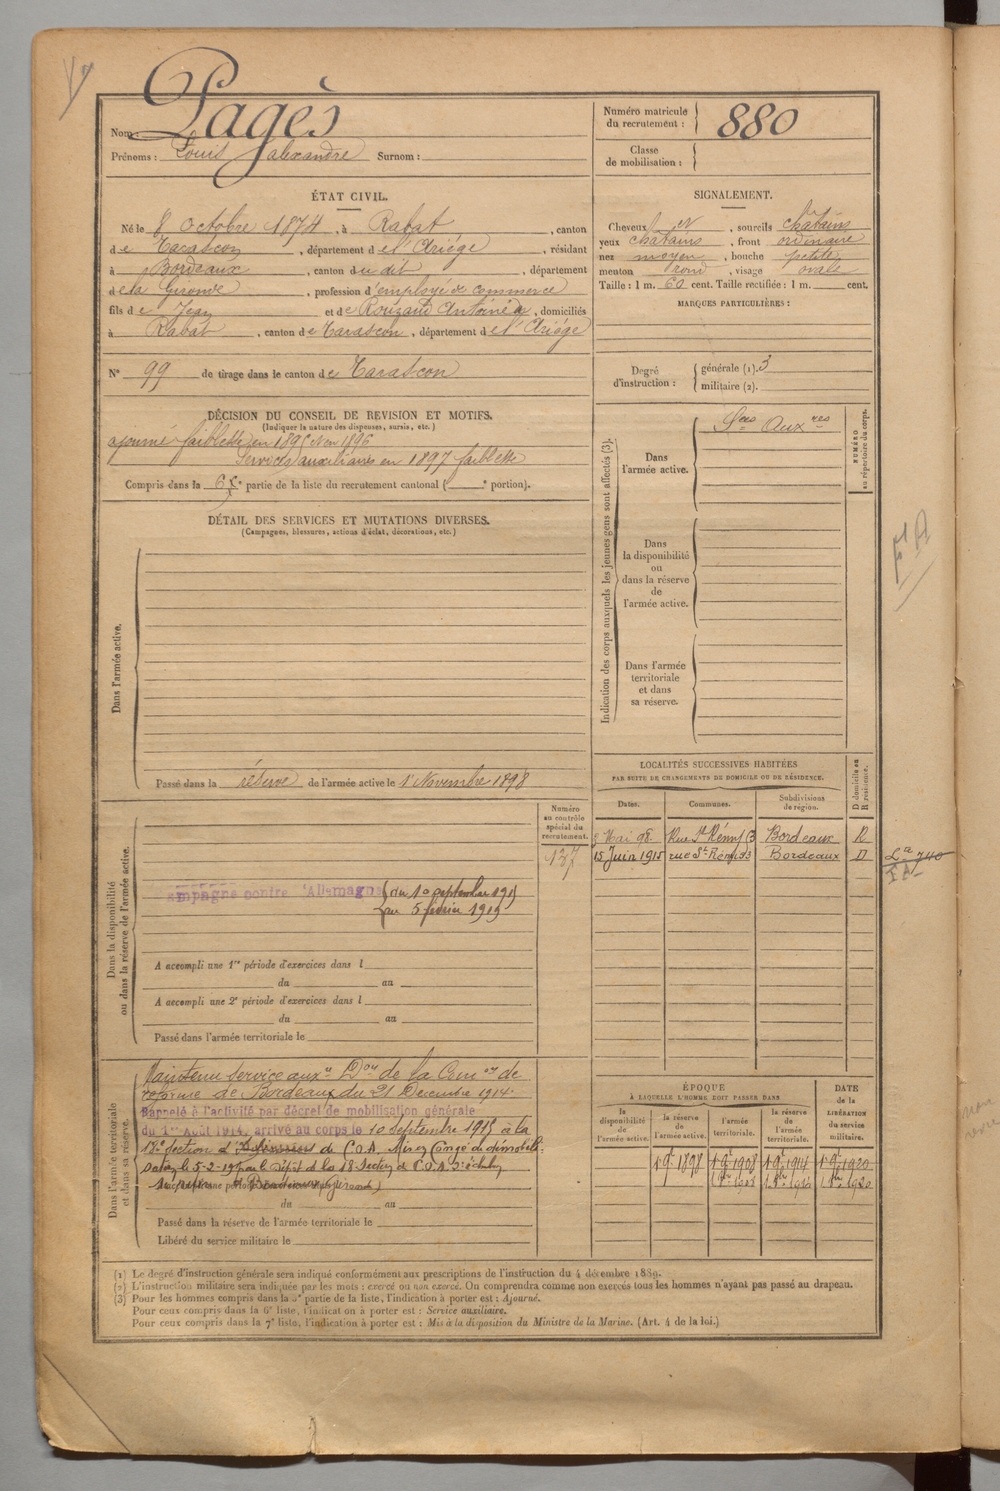 Nom : Pagès
Prénoms : Louis Alexandre Surnom :
Numéro matricule du recrutement : 880
Classe de mobilisation :
ÉTAT CIVIL.
Né le 8 octobre 1874, à Rabat, canton
de Tarascon, département de l'Ariège, résidant
à Bordeaux, canton du dit, département
de la Gironde, profession d'employé de commerce
fils de Jean et de Rouzaud Antoinea, domiciliés
à Rabat, canton de Tarascon, département de l'Ariège
N° 99 de tirage dans le canton de Tarascon
SIGNALEMENT.
Cheveux et, sourcils chatains
yeux chatains, front ordinaire
nez moyen, bouche petite
menton rond, visage ovale
Taille : 1 m. 60 cent. Taille rectifiée : 1 m. cent.
MARQUES PARTICULIÈRES :
Degré d'instruction : générale (1). 3
militaire (2).
DÉCISION DU CONSEIL DE REVISION ET MOTIFS.
(Indiquer la nature des dispenses, sursis, etc.)
ajourné faiblesse en 1895 et en 1896
Services auxiliaires en 1897 faiblesse
Compris dans la 6e partie de la liste du recrutement cantonal ( e portion).
DÉTAIL DES SERVICES ET MUTATIONS DIVERSES.
(Campagnes, blessures, actions d'éclat, décorations, etc.)
Dans l'armée active.
Passé dans la réserve de l'armée active le 1 Novembre 1898
Indication des corps auxquels les jeunes gens sont affectés (3).
Dans l'armée active.
Sces Auxres
NUMÉRO au répertoire du corps.
Dans la disponibilité ou dans la réserve de l'armée active.
Dans l'armée territoriale et dans sa réserve.
F A
LOCALITÉS SUCCESSIVES HABITÉES
PAR SUITE DE CHANGEMENTS DE DOMICILE OU DE RÉSIDENCE.
Dates. Communes. Subdivisions de région. D domicile ou R résidence.
Mai 98 Rue St Rémy 3 Bordeaux R
15 Juin 1915 rue St Rémi 33 Bordeaux D
Dans la disponibilité ou dans la réserve de l'armée active.
Numéro au contrôle spécial du recrutement.
137
Campagne contre l'Allemagne du 10 septembre 1915
au 5 février 1919
A accompli une 1re période d'exercices dans l
du au
A accompli une 2e période d'exercices dans l
du au
Passé dans l'armée territoriale le
Dans l'armée territoriale et dans sa réserve.
Maintenu service auxre Don de la Comon de
réforme de Bordeaux du 21 Décembre 1914.
Rappelé à l'activité par décret de mobilisation générale
du 1er Août 1914. arrivé au corps le 10 Septembre 1915 à la
18e Section de C.O.A. Mis en Congé de démobili-
sation le 5-2-19 par le Dépôt de la 18 Section de C.O.A.
du au
Passé dans la réserve de l'armée territoriale le
Libéré du service militaire le
ÉPOQUE
À LAQUELLE L'HOMME DOIT PASSER DANS
la disponibilité de l'armée active. la réserve de l'armée active. l'armée territoriale. la réserve de l'armée territoriale. DATE de la LIBÉRATION du service militaire.
1 9e 1898 1 9e 1908 1 9e 1914 1 9e 1920
(1) Le degré d'instruction générale sera indiqué conformément aux prescriptions de l'instruction du 4 décembre 1889.
(2) L'instruction militaire sera indiquée par les mots : exercé ou non exercé. On comprendra comme non exercés tous les hommes n'ayant pas passé au drapeau.
(3) Pour les hommes compris dans la 5e partie de la liste, l'indication à porter est : Ajourné.
Pour ceux compris dans la 6e liste, l'indication à porter est : Service auxiliaire.
Pour ceux compris dans la 7e liste, l'indication à porter est : Mis à la disposition du Ministre de la Marine. (Art. 4 de la loi.)